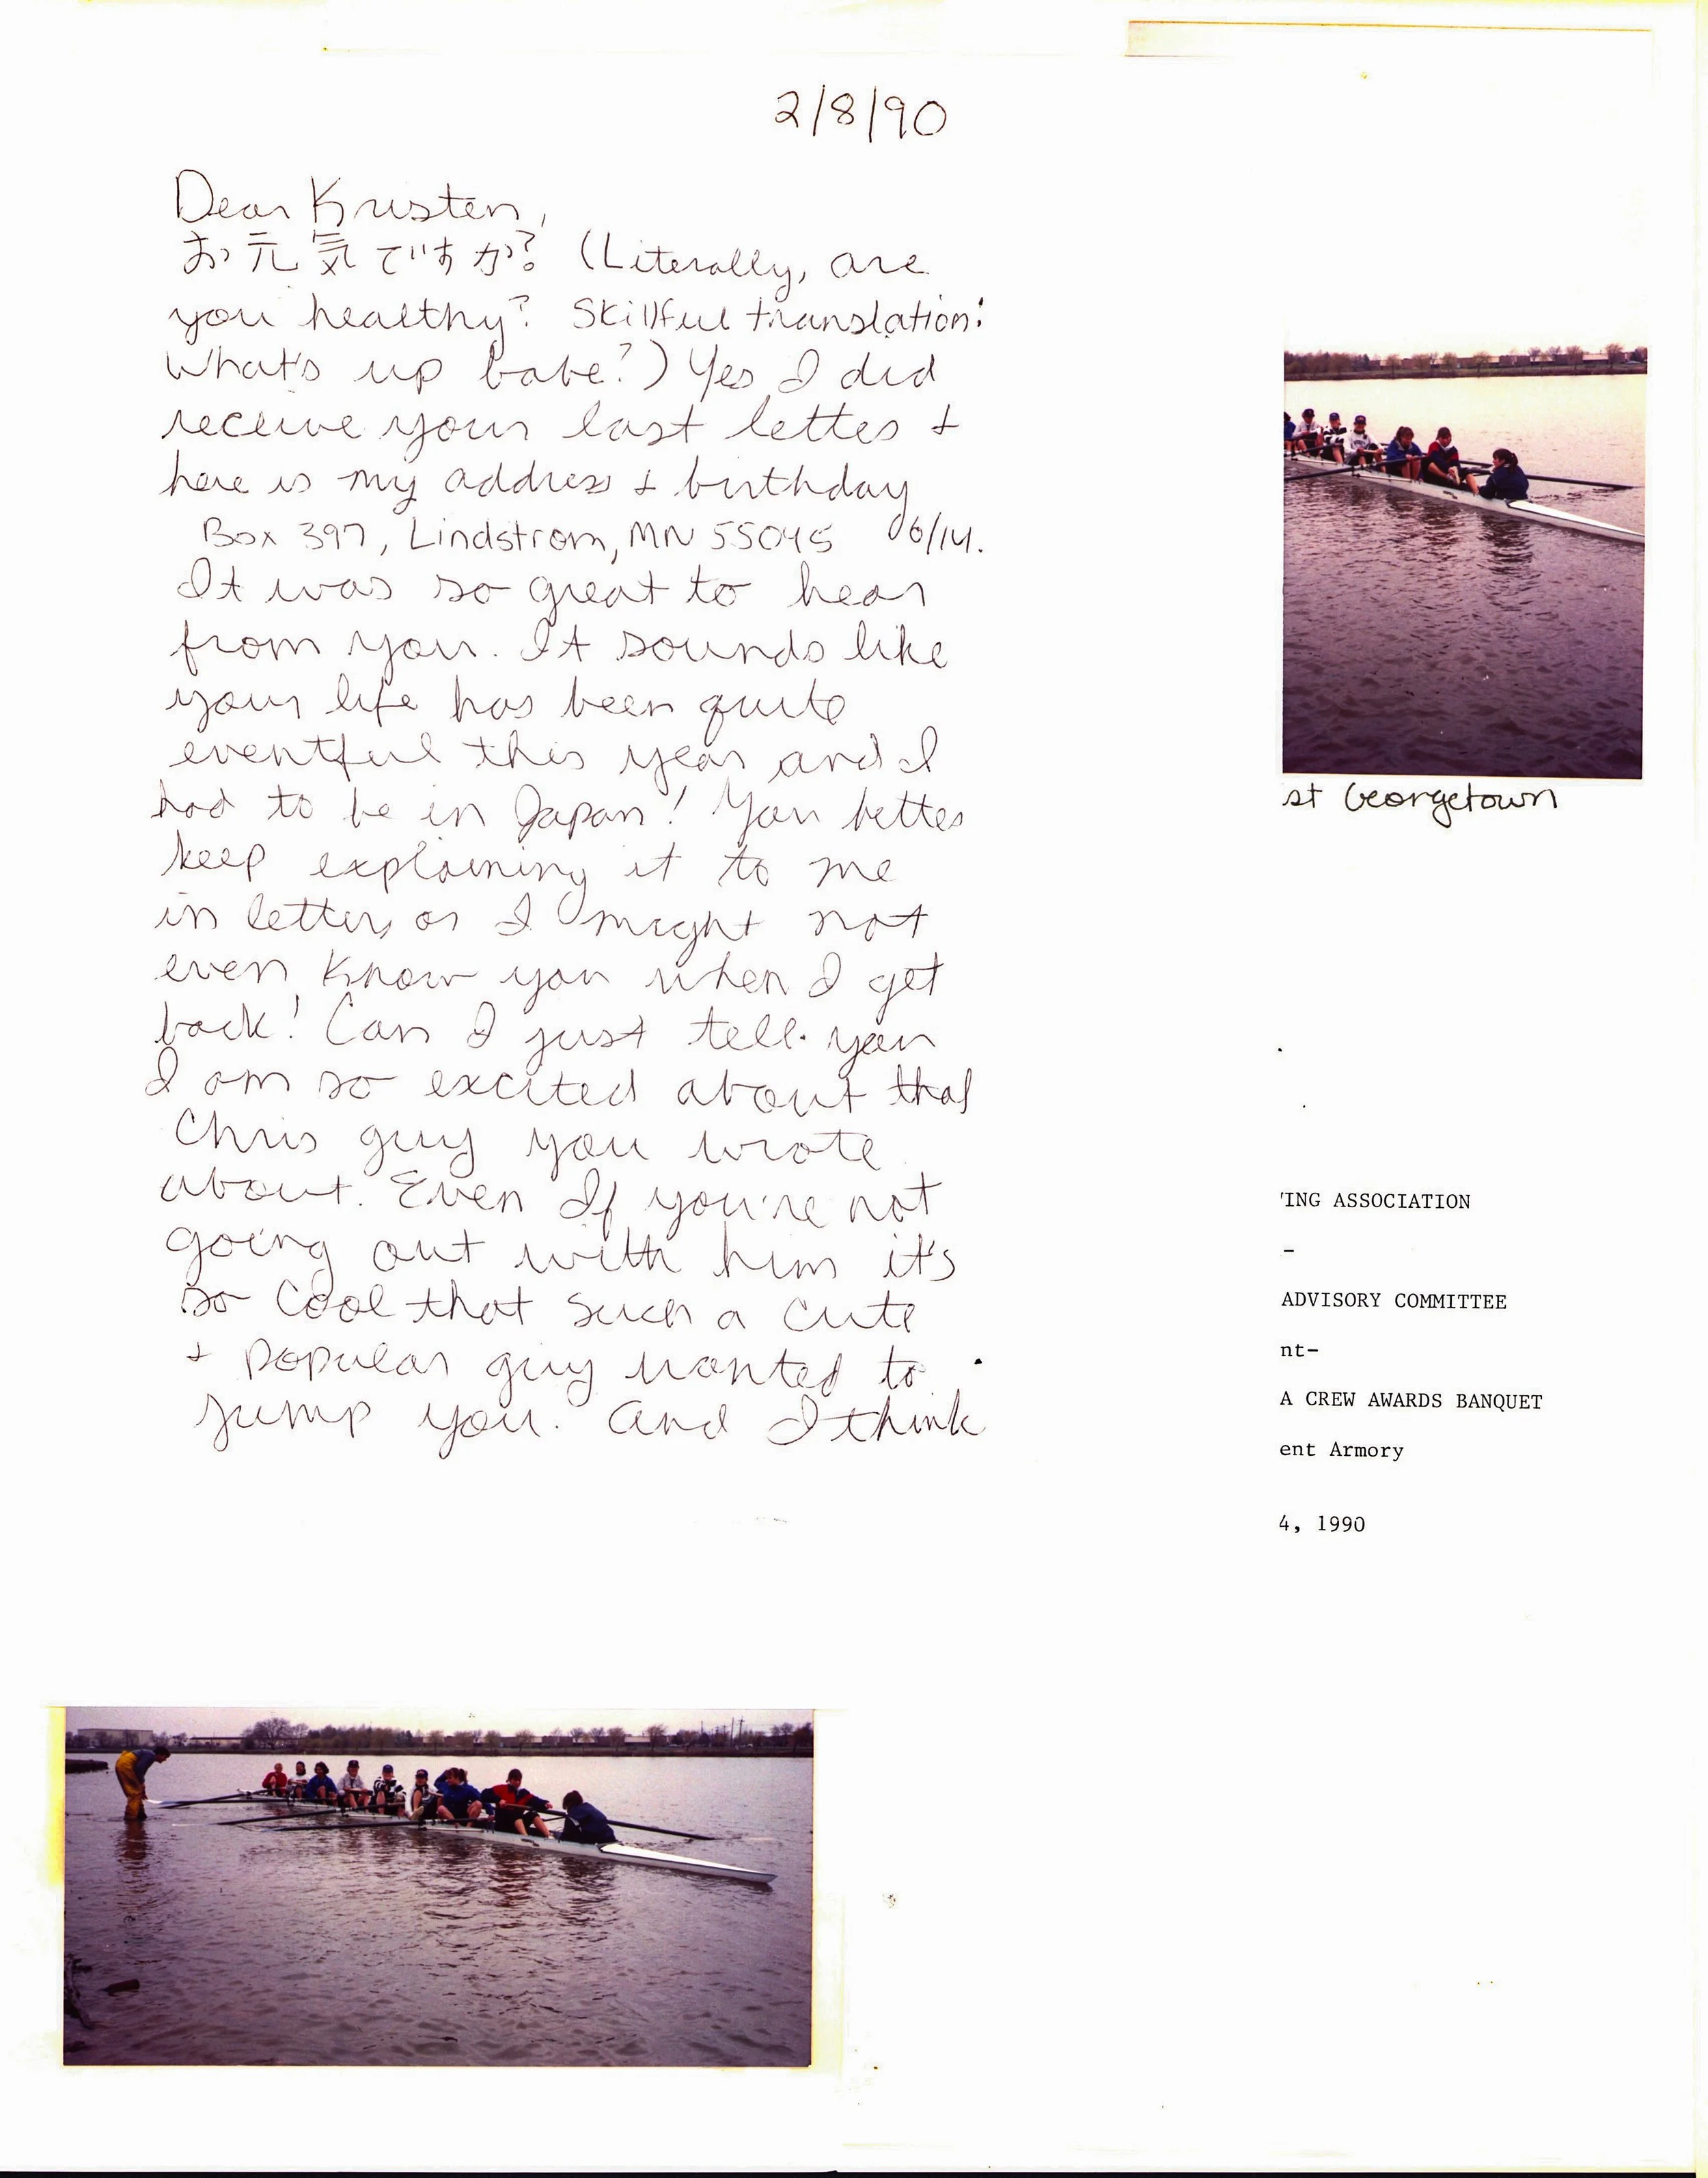 2/8/90
Dear Kristen,
お元気ですか? (Literally, are
you healthy? Skillful translation:
What's up babe?) Yes I did
receive your last letter +
here is my address + birthday
Box 397, Lindstrom, MN 55045 6/14.
It was so great to hear
from you. It sounds like
your life has been quite
eventful this year and I
had to be in Japan! You better
keep explaining it to me
in letters or I might not
even know you when I get
back! Can I just tell you
I am so excited about that
Chris guy you wrote
about. Even If you're not
going out with him it's
so cool that such a cute
+ popular guy wanted to
jump you. And I think
st Georgetown
ING ASSOCIATION
-
ADVISORY COMMITTEE
nt-
A CREW AWARDS BANQUET
ent Armory
4, 1990